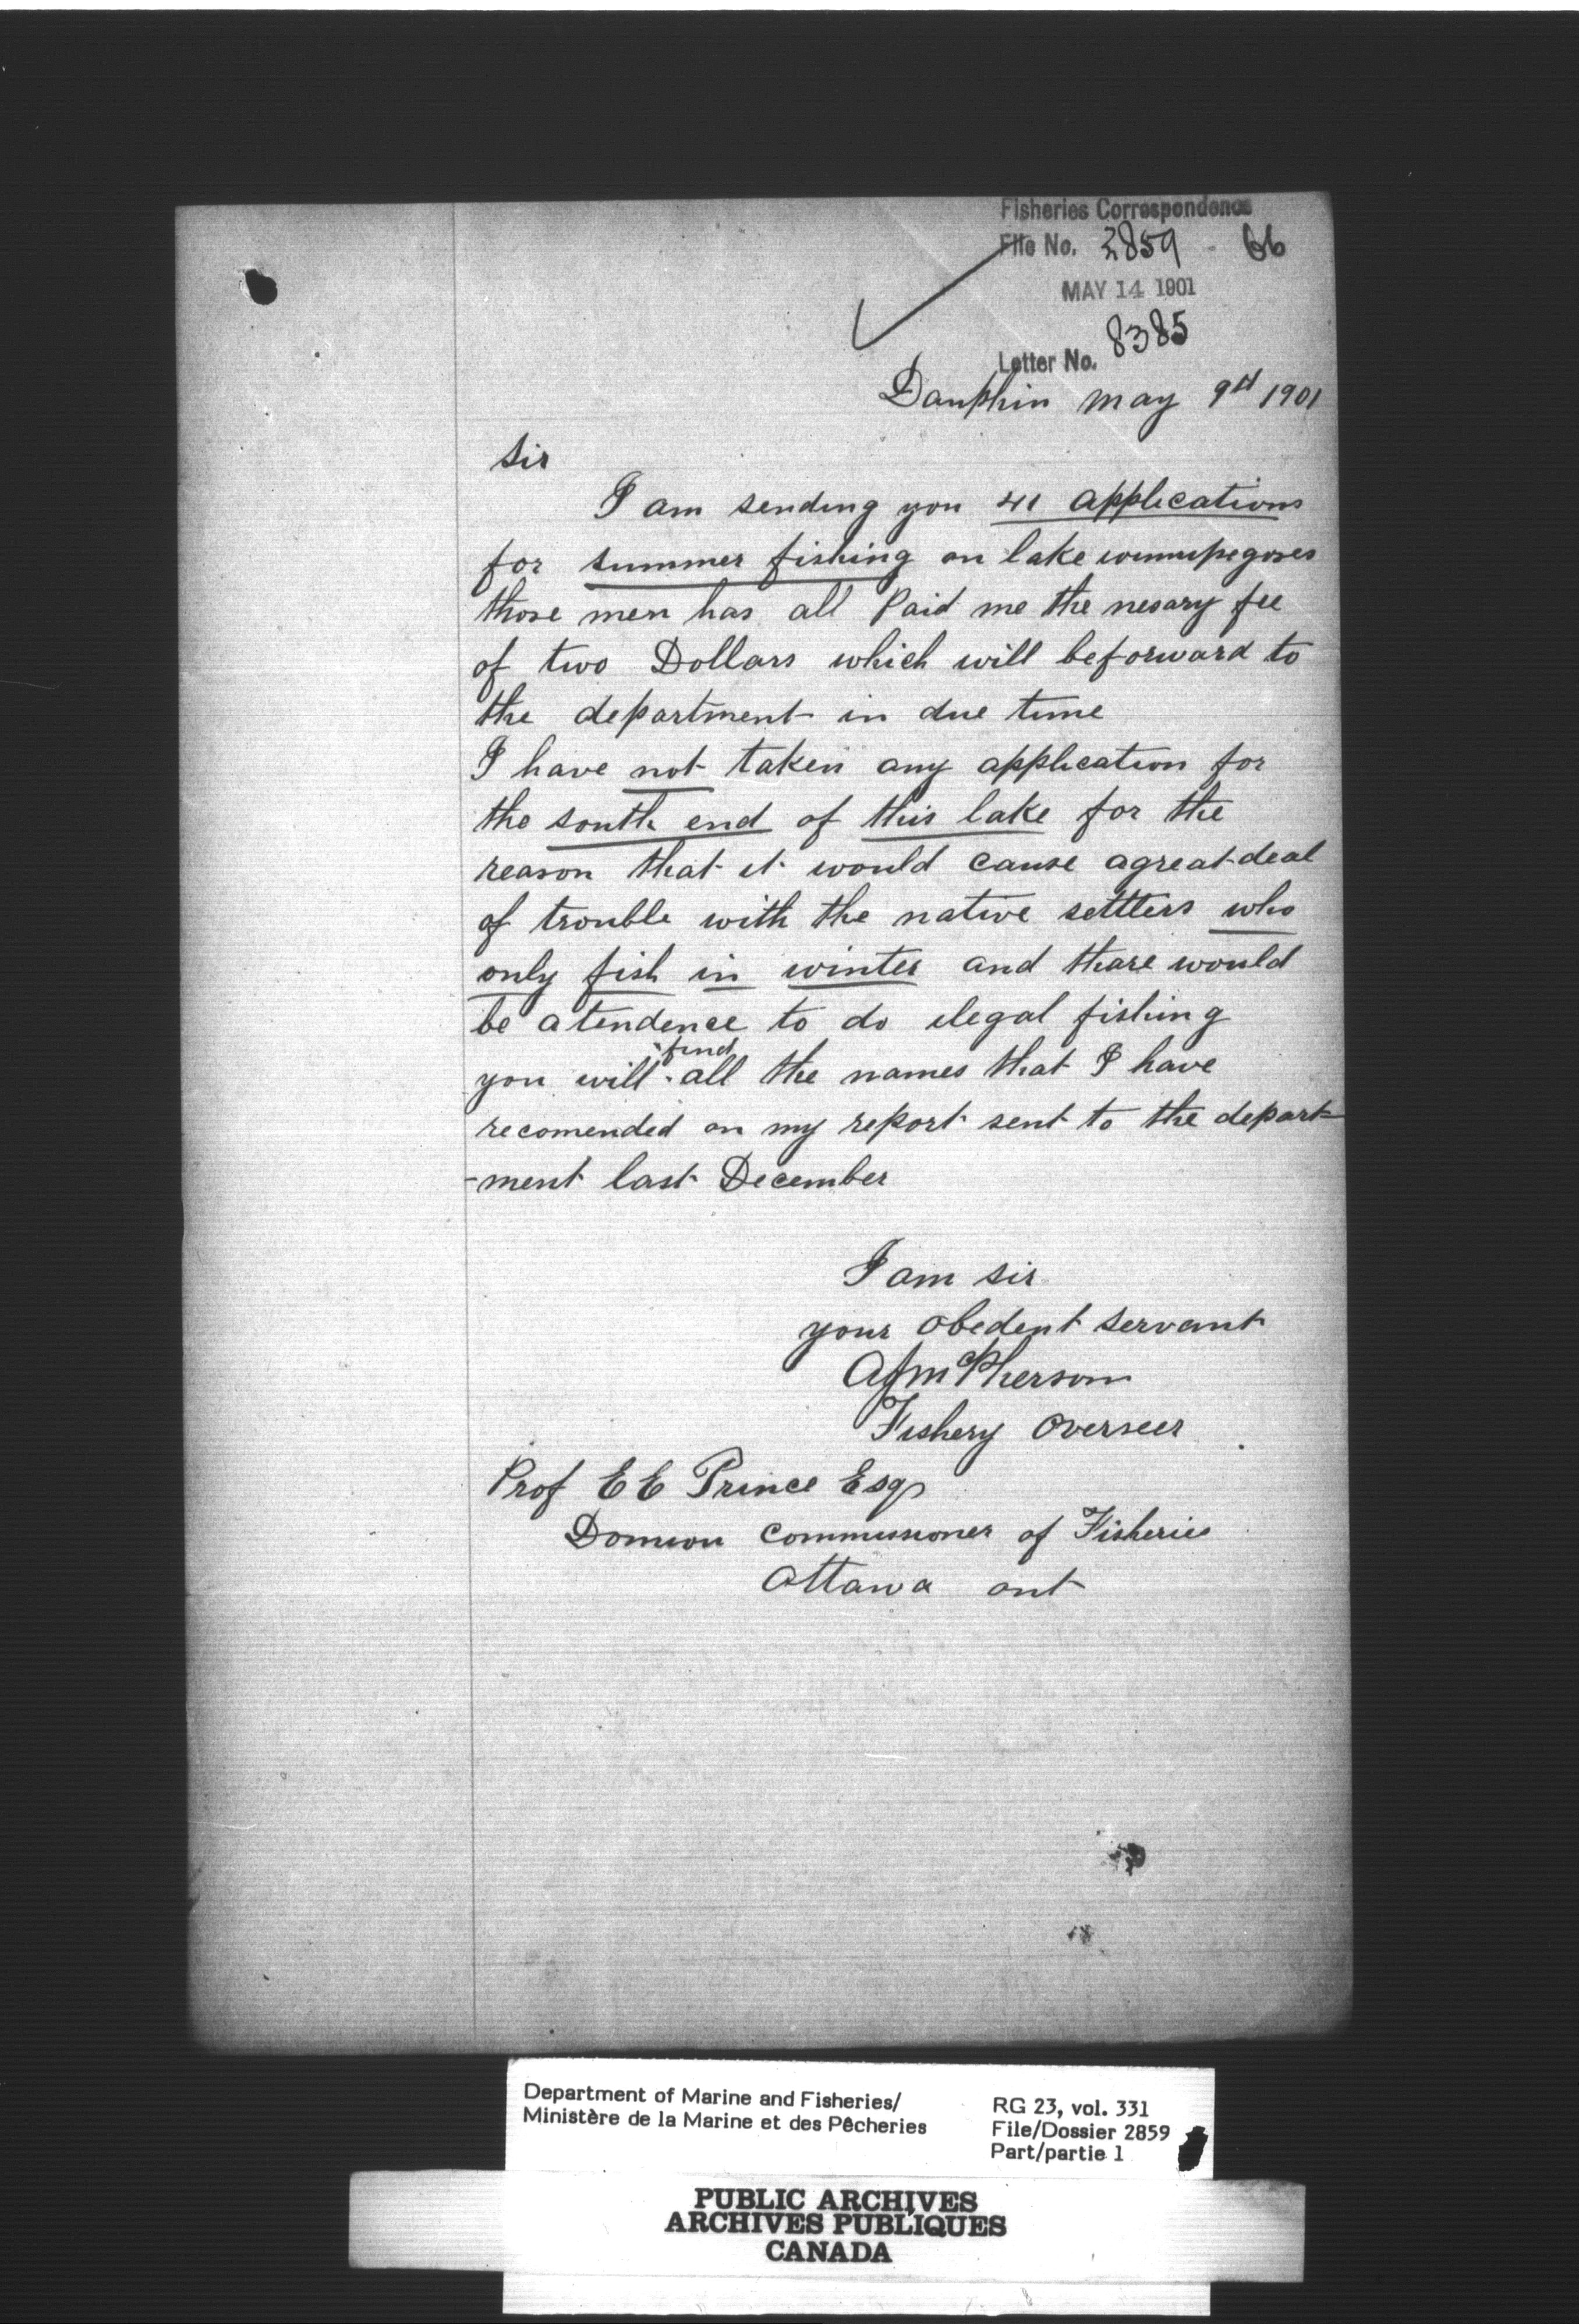 Fisheries Correspondence
File No. 2859 - 66
MAY 14 1901
Letter No. 8385
Dauphin may 9th 1901
Sir
I am sending you 41 applications
for summer fishing on lake winnipegoses
those men has all Paid me the nesary fee
of two Dollars which will beforward to
the department in due time
I have not taken any application for
the south end of this lake for the
reason that it would cause agreat deal
of trouble with the native settlers who
only fish in winter and thare would
be a tendence to do elegal fishing
you will find all the names that I have
recomended on my report sent to the depart-
-ment last December
I am sir
your obedent servant
A J McPherson
Fishery Overseer
Prof E E Prince Esq
Domion Commissioner of Fisheries
Ottawa ont
Department of Marine and Fisheries/
Ministère de la Marine et des Pêcheries
RG 23, vol. 331
File/Dossier 2859
Part/partie 1
PUBLIC ARCHIVES
ARCHIVES PUBLIQUES
CANADA